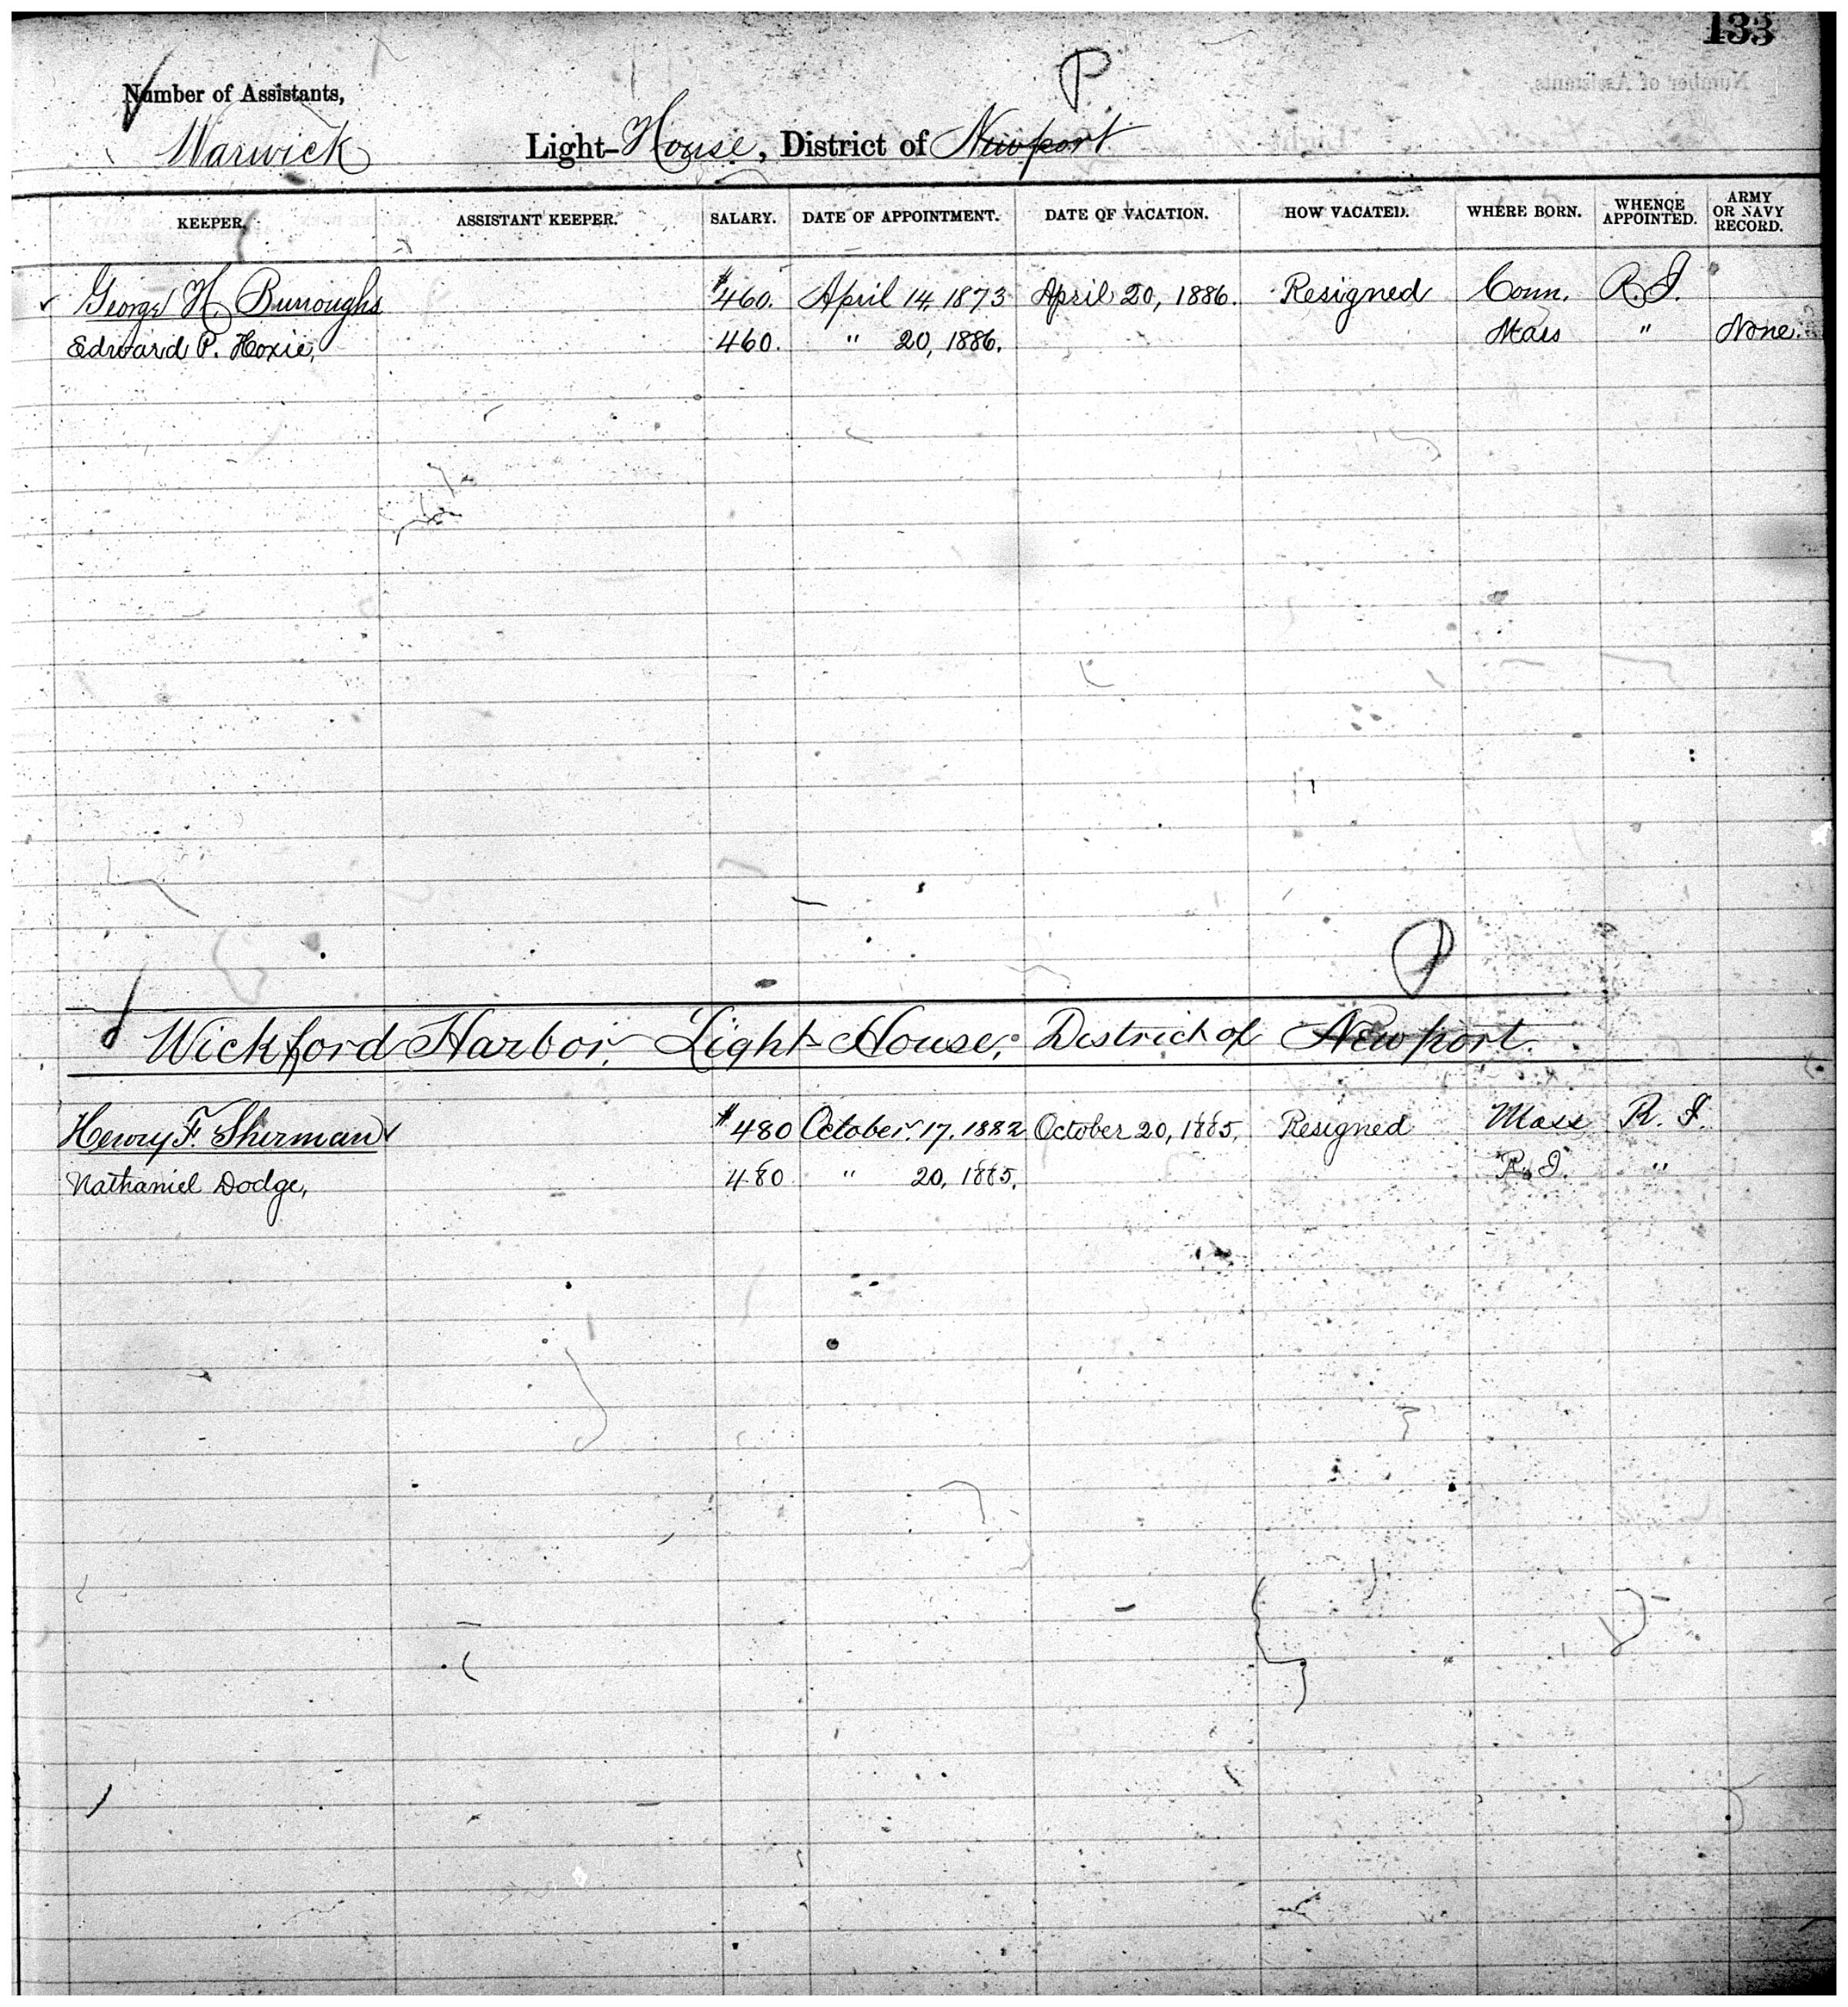 133
P
Number of Assistants,
Warwick Light-House, District of Newport
KEEPER. ASSISTANT KEEPER. SALARY. DATE OF APPOINTMENT. DATE OF VACATION. HOW VACATED. WHERE BORN. WHENCE APPOINTED. ARMY OR NAVY RECORD.
George H. Burroughs $460. April 14, 1873 April 20, 1886. Resigned Conn. R.I.
Edward P. Hoxie, 460. " 20, 1886. Mass " None.
P
Wickford Harbor Light-House, District of Newport.
Henry F. Sherman $480 October 17, 1882 October 20, 1885, Resigned Mass R. I.
Nathaniel Dodge, 480 " 20, 1885. R. I. "